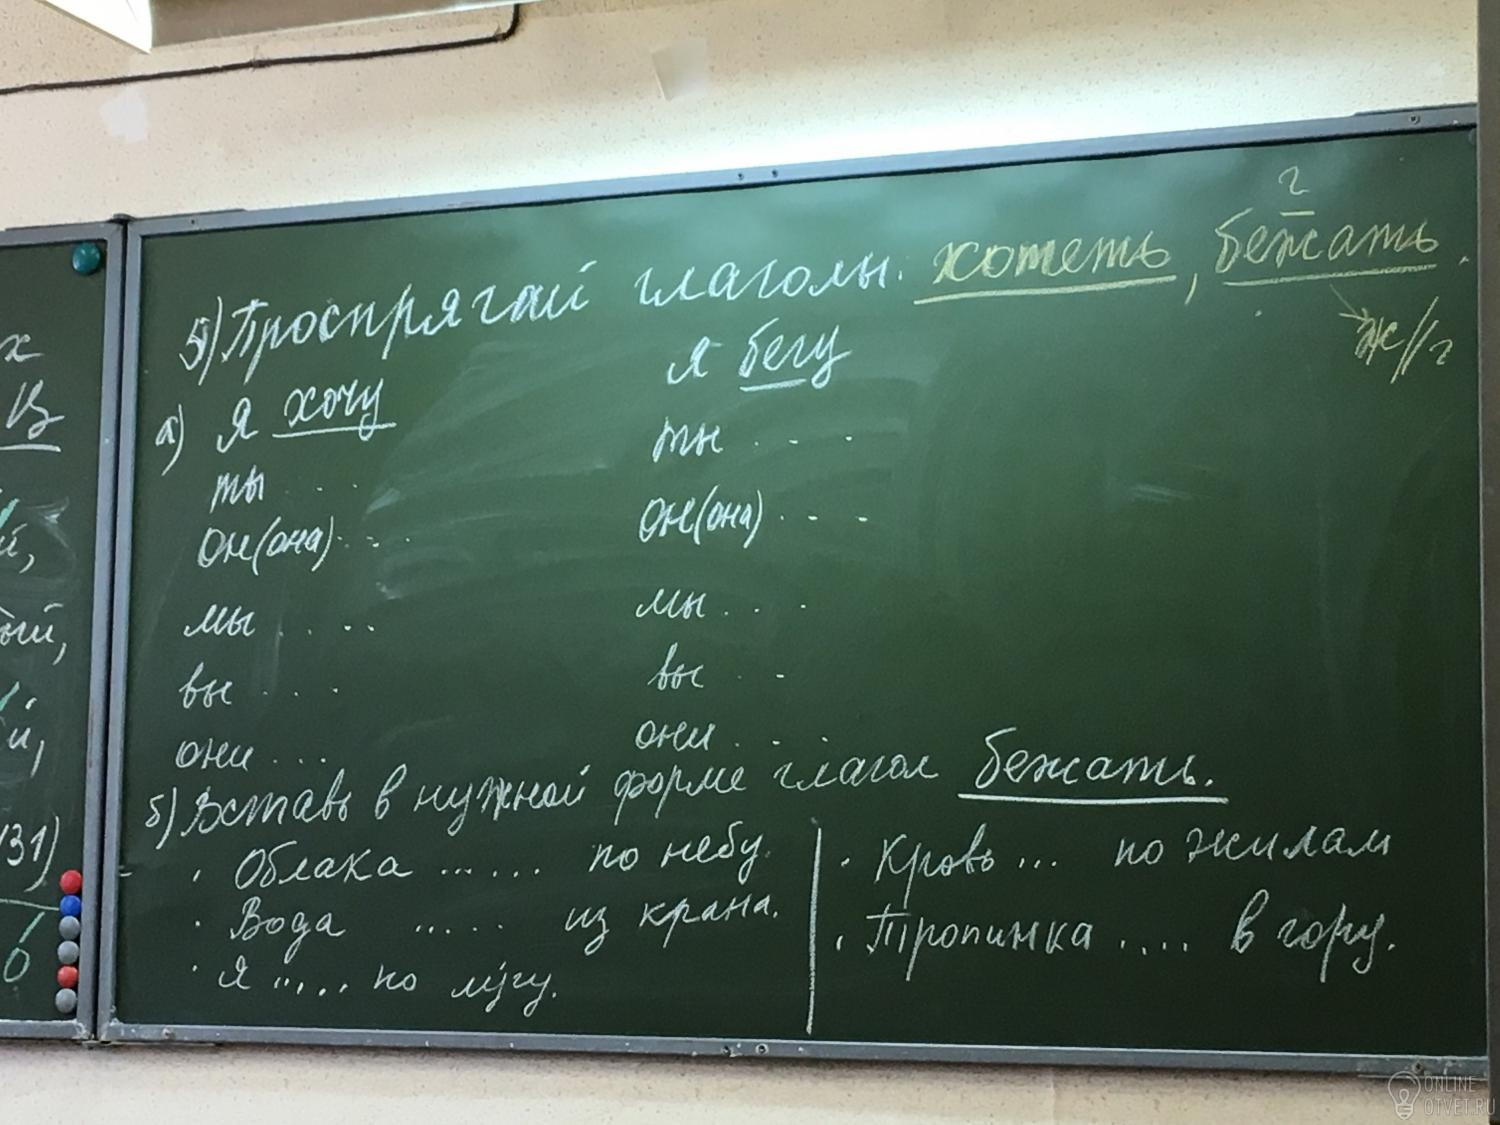 х
В
й,
ый,
й,
131)
б
г
5) Проспрягай глаголы. хотеть, бежать.
ж//г
а) Я хочу
ты ....
он(она) ....
мы ....
вы ....
они ...
я бегу
ты ....
он(она) ....
мы ...
вы ...
они ....
б) Вставь в нужной форме глагол бежать.
· Облака ...... по небу.
· Вода ..... из крана.
· Я ..... по лугу.
· Кровь ... по жилам
· Тропинка .... в гору.
ONLINE
OTVET.RU